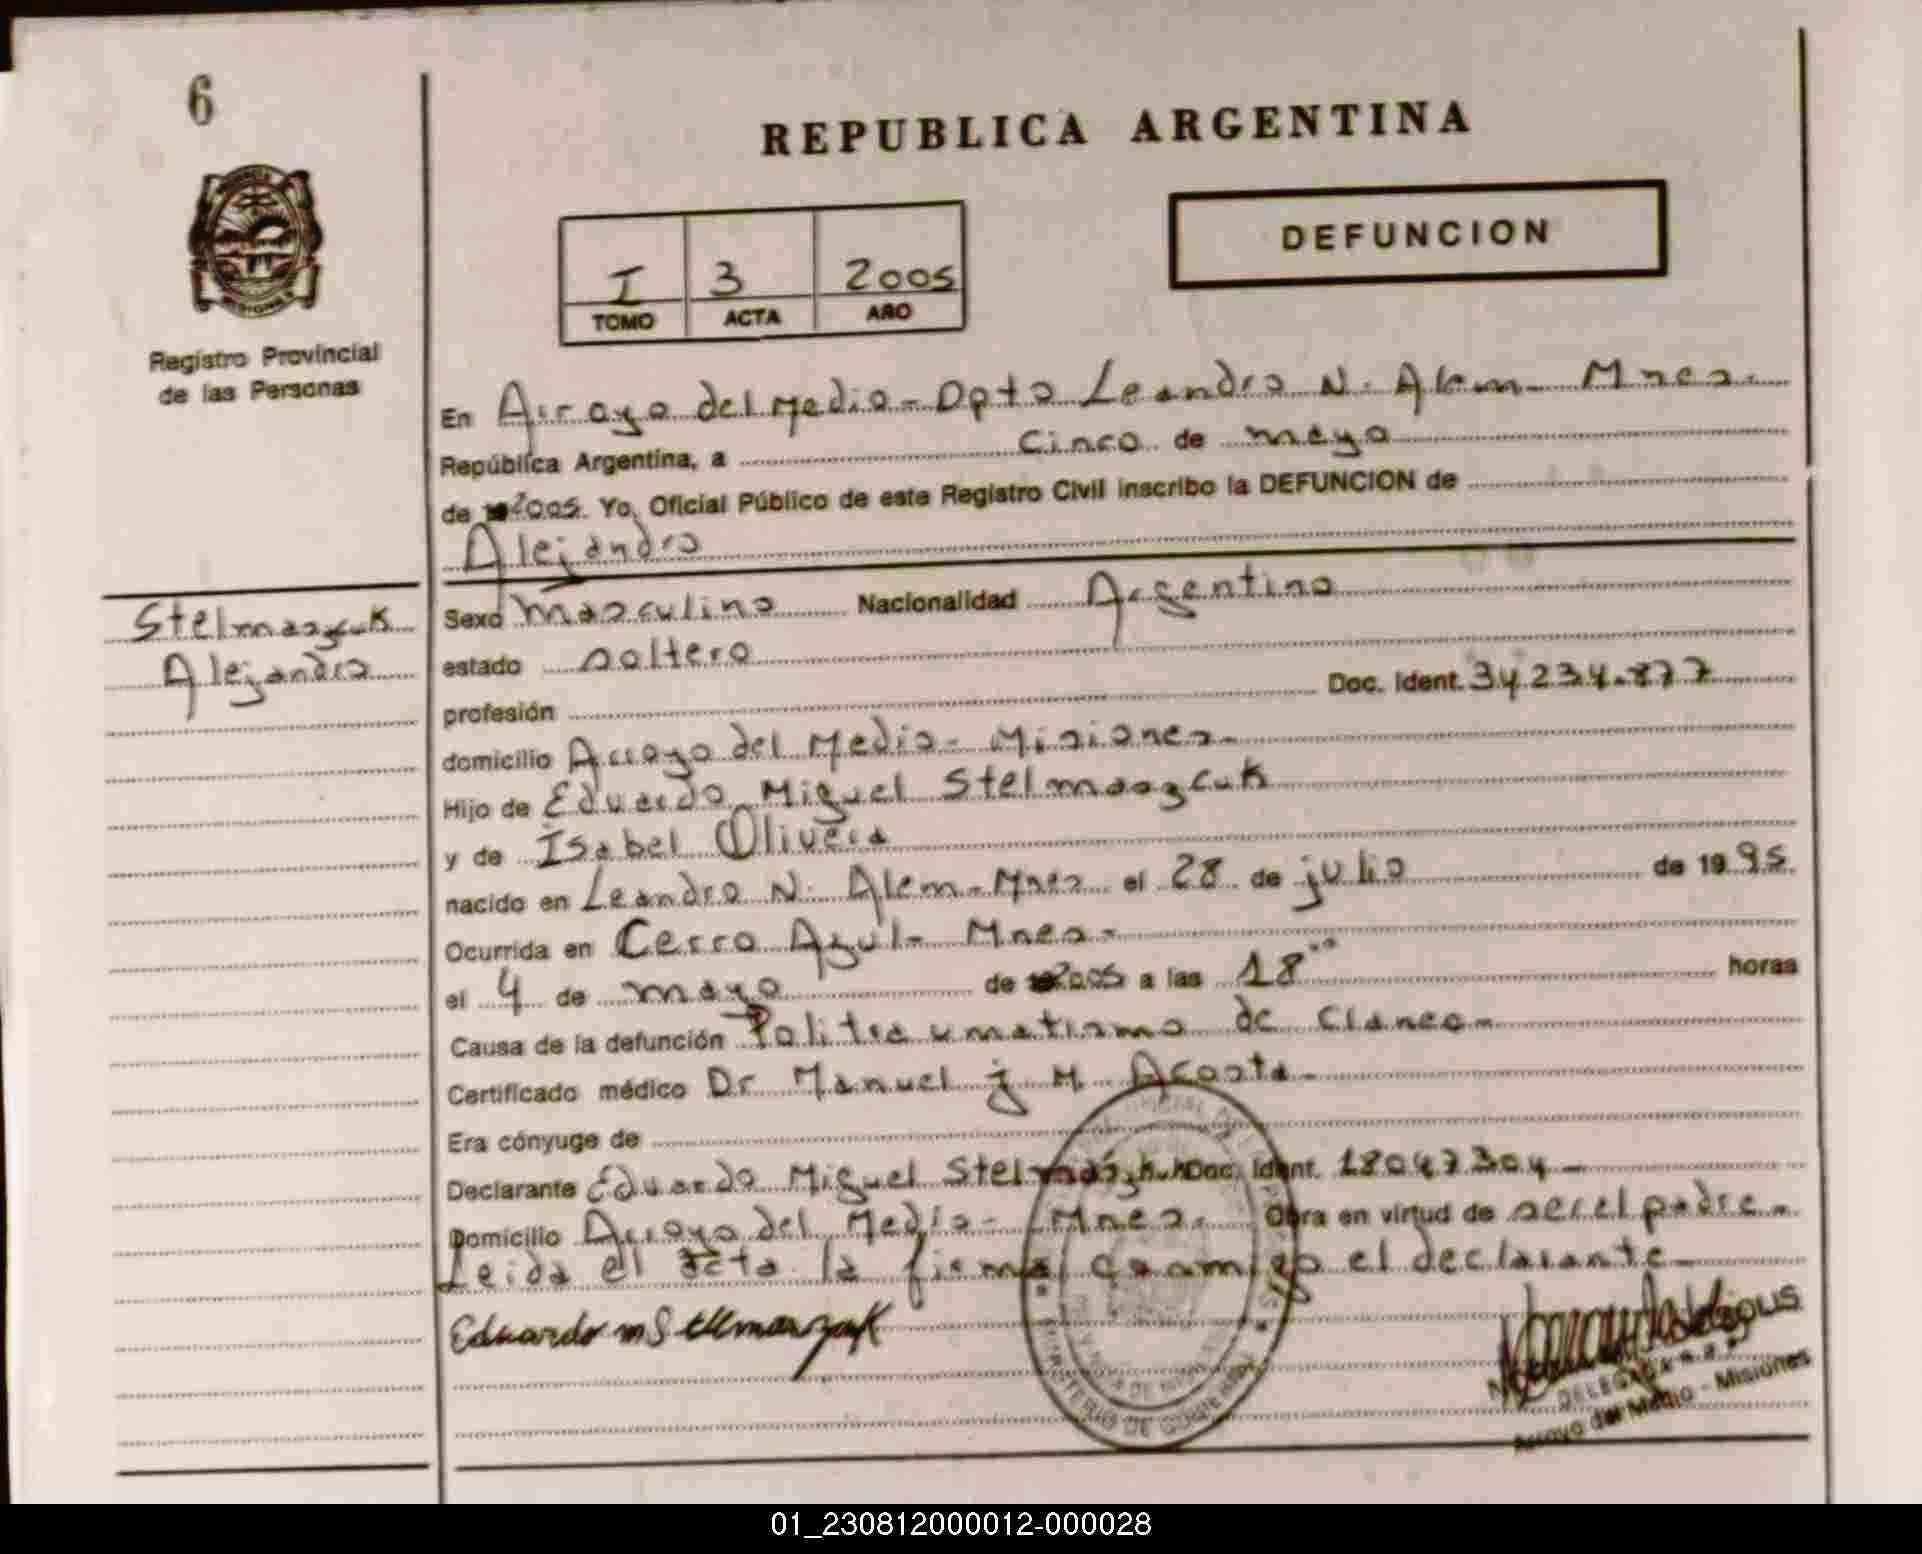 6
REPUBLICA ARGENTINA
DEFUNCION
I 3 2005
TOMO ACTA AÑO
Registro Provincial
de las Personas
En Arroyo del Medio - Dpto Leandro N. Alem - Mnes.
República Argentina, a cinco de mayo
de 2005. Yo, Oficial Público de este Registro Civil inscribo la DEFUNCION de
Alejandro
Stelmaszcuk
Alejandro
Sexo masculino Nacionalidad Argentino
estado soltero
profesión Doc. Ident. 34.234.877
domicilio Arroyo del Medio - Misiones -
Hijo de Eduardo Miguel Stelmaszcuk
y de Isabel Olivera
nacido en Leandro N. Alem - Mnes el 28 de julio de 1995.
Ocurrida en Cerro Azul - Mnes -
el 4 de mayo de 2005 a las 18 00 horas
Causa de la defunción Politraumatismo de
Certificado médico Dr Manuel J M Acosta -
Era cónyuge de
Declarante Eduardo Miguel Doc. Ident. 18047304 -
Domicilio Arroyo del Medio - Mnes. Obra en virtud de ser el padre -
Leida el acta la firma conmigo el declarante -
Eduardo m
MINISTERIO DE GOBIERNO
DELEGADA
Arroyo del Medio - Misiones
01_230812000012-000028